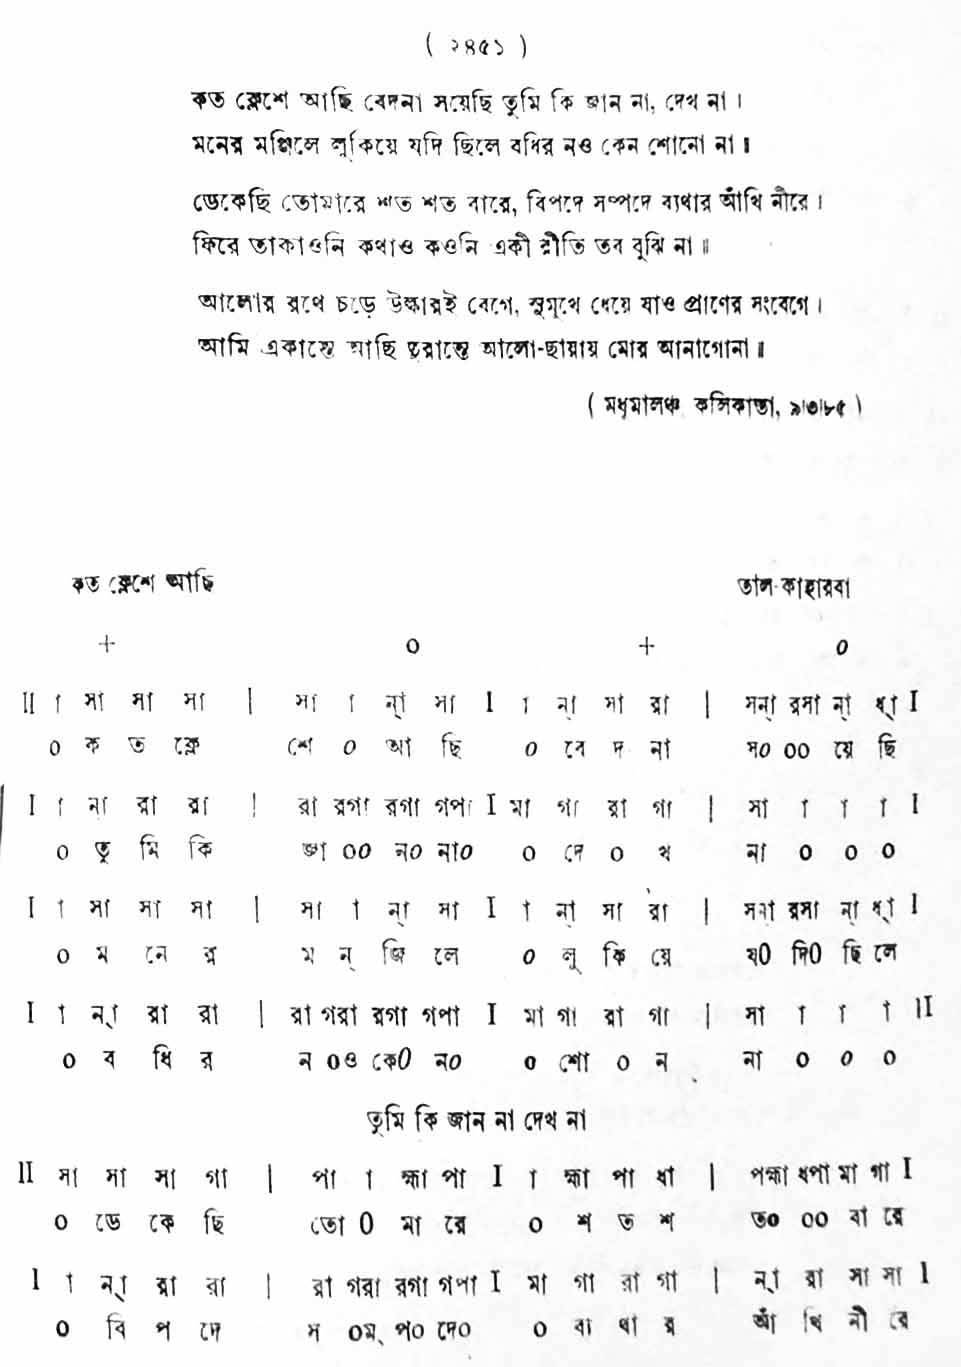 ( ২৪৫১ )
কত ক্লেশে আছি বেদনা সয়েছি তুমি কি জান না, দেখ না ।
মনের মঞ্জিলে লুকিয়ে যদি ছিলে বধির নও কেন শোনো না ॥
ডেকেছি তোমারে শত শত বারে, বিপদে সম্পদে ব্যথার আঁখি নীরে ।
ফিরে তাকাওনি কথাও কওনি একী রীতি তব বুঝি না ॥
আলোর রথে চড়ে উল্কারই বেগে, সুমুখে ধেয়ে যাও প্রাণের সংবেগে ।
আমি একান্তে আছি দুরান্তে আলো-ছায়ায় মোর আনাগোনা ॥
( মধুমালঞ্চ, কলিকাতা, ৯/৩/৮৫ )
কত ক্লেশে আছি তাল-কাহারবা
+ ০ + ০
II া সা সা সা | সা া ন্া সা I া ন্া সা রা | সন্া রসা ন্া ধ্া I
০ ক ত ক্লে শে ০ আ ছি ০ বে দ না স০ ০০ য়ে ছি
I া না রা রা | রা রগা রগা গপা I মা গা রা গা | সা া া া I
০ তু মি কি জা ০০ ন০ না০ ০ দে ০ খ না ০ ০ ০
I া সা সা সা | সা া ন্া সা I া ন্া সা রা | সনা রসা ন্া ধ্া I
০ ম নে র ম ন্ জি লে ০ লু কি য়ে য০ দি০ ছি লে
I া ন্া রা রা | রা গরা রগা গপা I মা গা রা গা | সা া া া II
০ ব ধি র ন ০ও কে০ ন০ ০ শো ০ ন না ০ ০ ০
তুমি কি জান না দেখ না
II সা সা সা গা | পা া হ্মা পা I া হ্মা পা ধা | পহ্মা ধপা মা গা I
০ ডে কে ছি তো ০ মা রে ০ শ ত শ ত০ ০০ বা রে
I া ন্া রা রা | রা গরা রগা গপা I মা গা রা গা | ন্া রা সা সা I
০ বি প দে স ০ম্ প০ দে০ ০ ব্য থা র আঁ খি নী রে